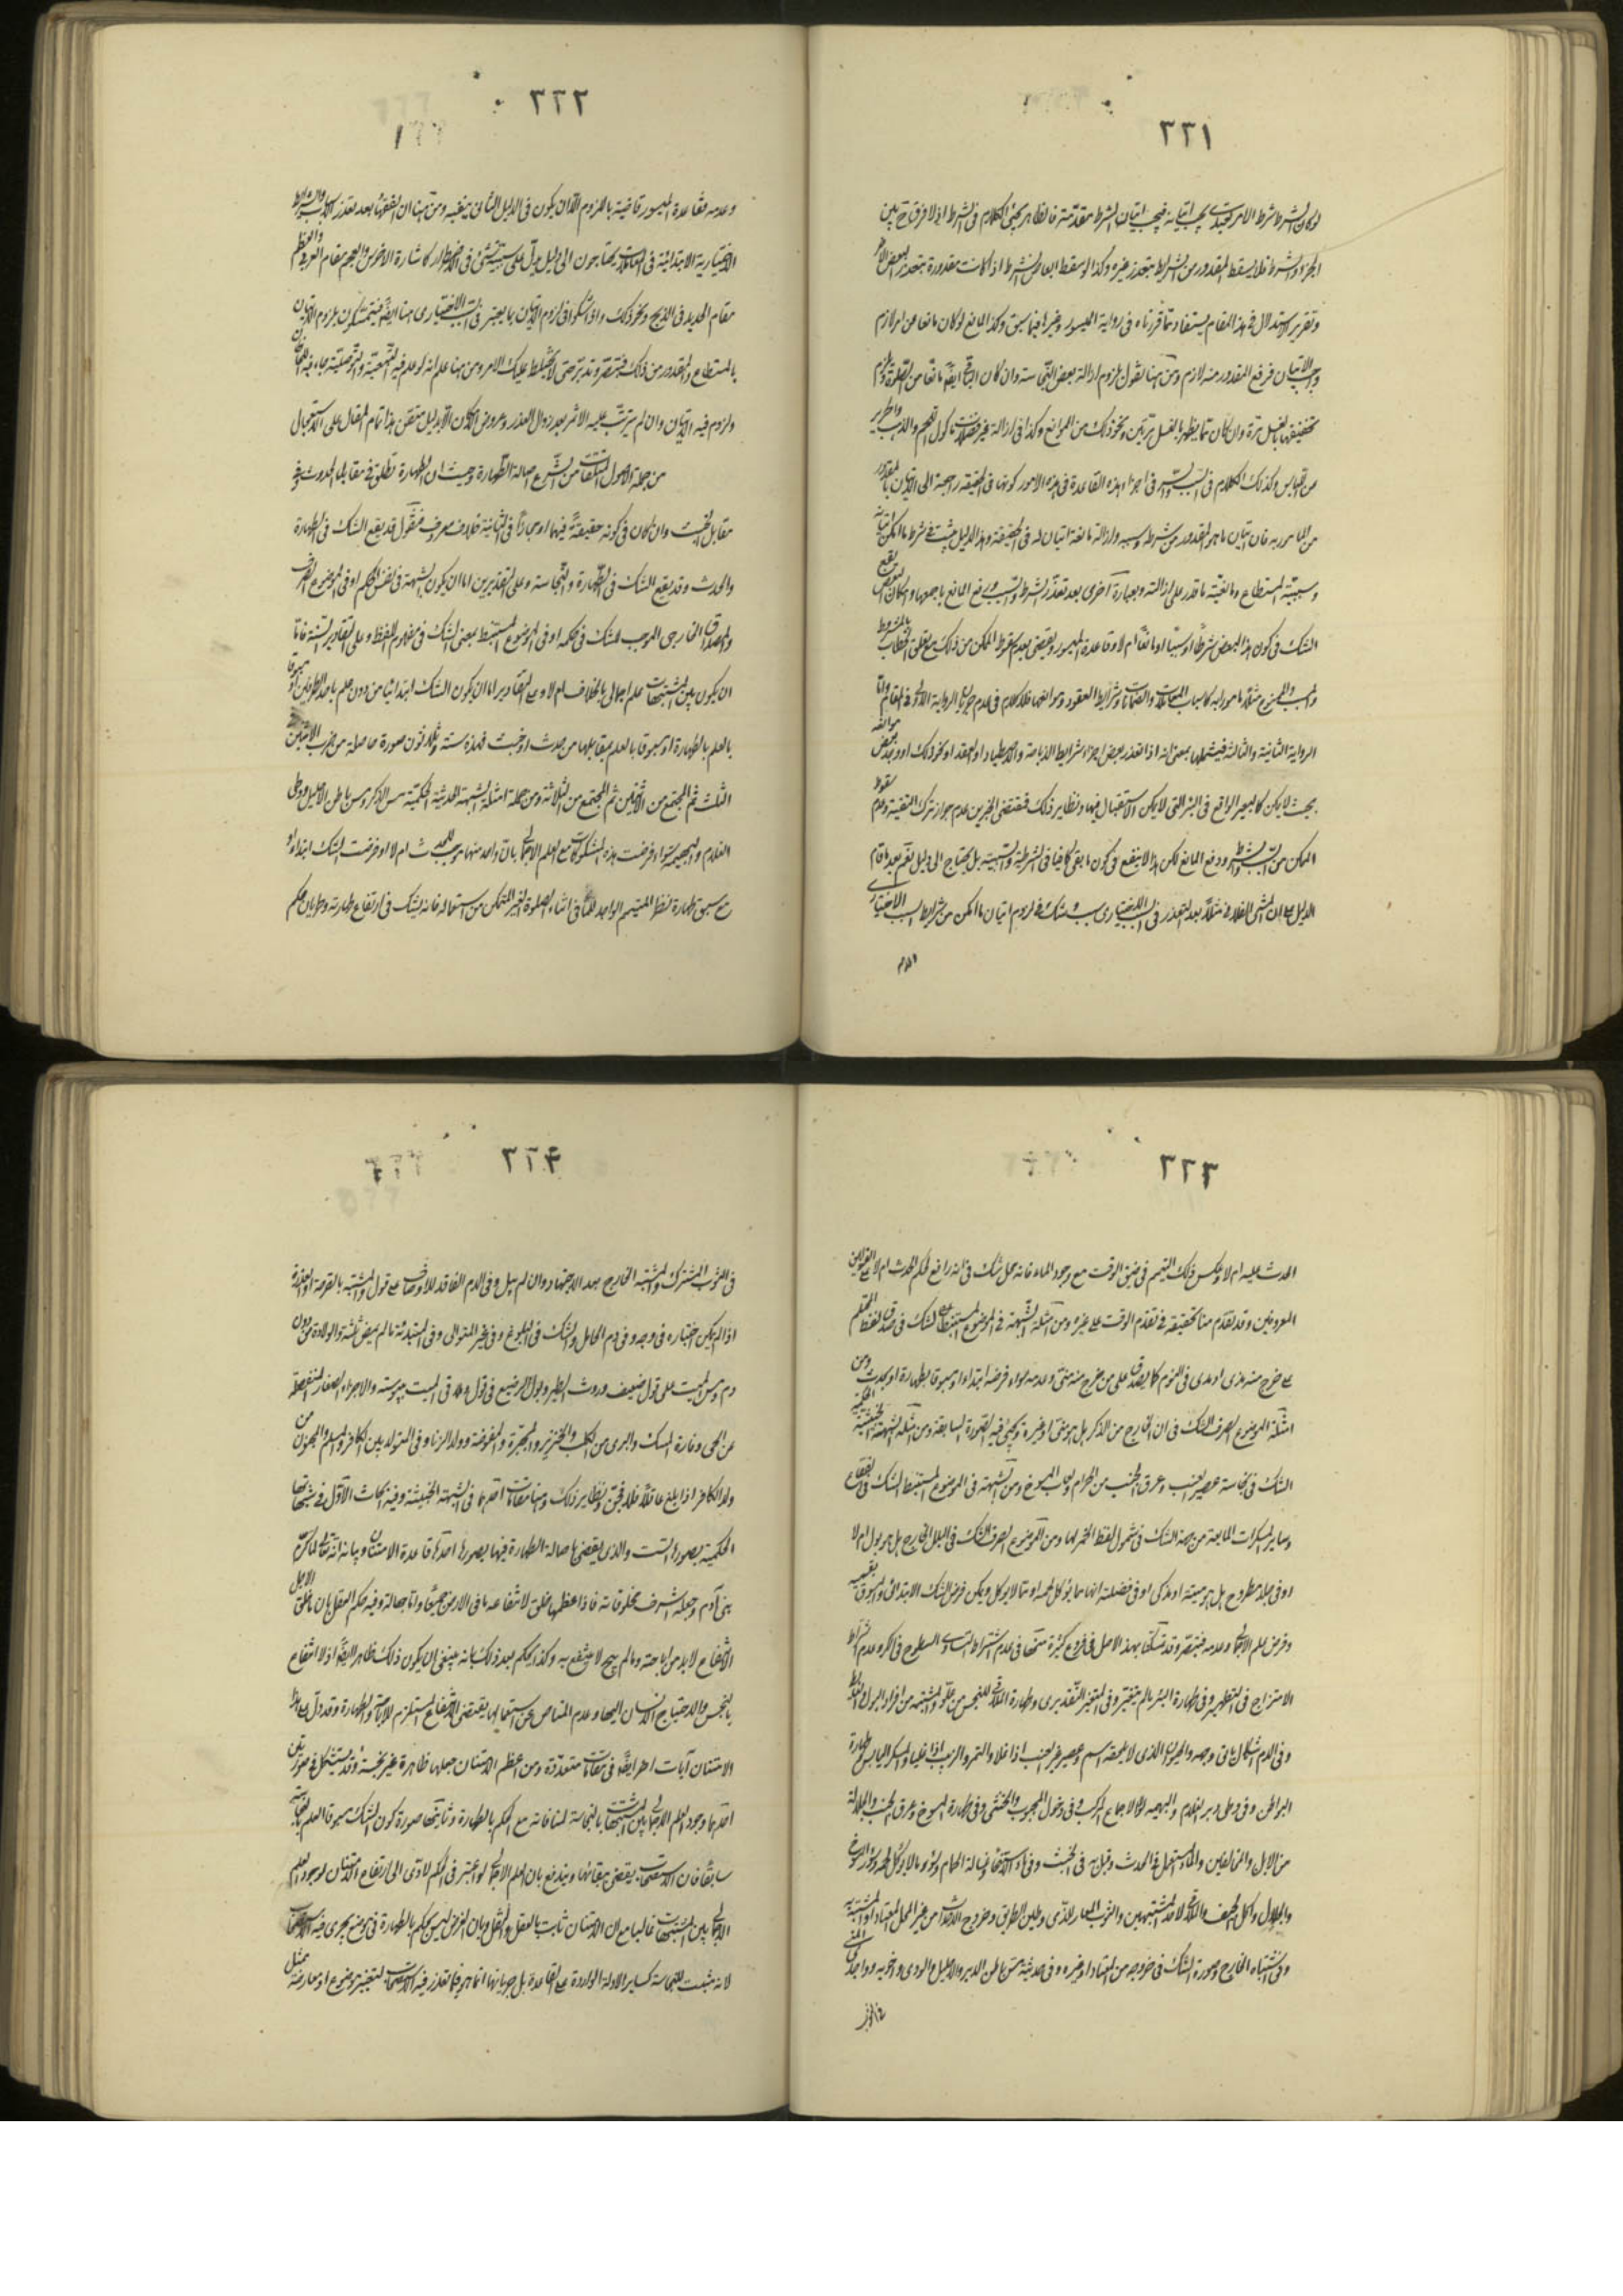 ٣٢١
لو كان الشرط شرط الامر كوجوب يجب اتيانه فيجب اتيان الشرط مقدمة فالظاهر يجئ الكلام فى الشرط اذ لا فرق ح بين
الجزء والشرط فلا يسقط المقدور من الشرايط بتعذر غيره وكذا لو سقط ابعاض الشرط اذا كانت مقدورة بتعذر البعض الاخر
وتقرير الاستدلال فى هذا المقام يستفاد مما قررناه فى رواية الميسور وغيرها فيما سبق وكذا المانع لو كان مانعا عن امر لازم
وجب الاتيان فرفع المقدور منه لازم ومن هنا نقول بلزوم ازالة بعض النجاسة وان كان الباقى ايضا مانعا من الصلوة ولزوم
تخفيفها بالغسل مرة وان كان مما يطهر بالغسل مرتين ونحو ذلك من الموانع وكذا فى ازالة غير فضلات ماكول اللحم والذهب والحرير
من اللباس وكذلك الكلام فى السبب والسر فى اجزاء هذه القاعدة فى هذه الامور كونها فى الحقيقة راجعة الى الاتيان بالمقدور
من المامور به فان اتيان ما هو المقدور من شرطه وسببه وازالة مانعه اتيان له فى الحقيقة وهذا الدليل يثبت شرطية ما امكن اتيانه
وسببية المستطاع ومانعية ما قدر على ازالته وبعبارة اخرى بعد تعذر الشرط والسبب ورفع المانع باجمعها وامكان البعض يقع
الشك فى كون هذا البعض شرطا او سببا او مانعا ام لا وقاعدة الميسور ويقضى بعدم سقوط الممكن من ذلك مع تعلق الخطاب بالمشروط
والمسبب والممنوع مثلا مامور به كاسباب المعاملات والضمانات وشرايط العقود وموانعها فلا كلام فى عدم جريان الرواية الاولى فى المقام واما
الرواية الثانية والثالثة فيشملها بمعنى انه اذا تعذر بعض اجزاء شرايط الذباحة والاصطياد او العقد او نحو ذلك او وجد بعض موانعه
بحيث لا يمكن كالبعير الواقع فى البئر التى لا يمكن الاستقبال فيها ونظاير ذلك فمقتضى الخبرين عدم جواز ترك البقية وعدم سقوط
الممكن من السبب والشرط ودفع المانع لكن هذا لا ينفع فى كون ما بقى كافيا فى الشرطية والسببية بل يحتاج الى دليل نعم بعد ما قام
الدليل على ان الشئ الفلانى مثلا بعد التعذر فى الاختيارى سبب وشك فى لزوم اتيان ما امكن من شرايط السبب الاختيارى
٣٢٢
وعدمه فقاعدة الميسور قاضية باللزوم الا ان يكون فى الدليل الثانى ما ينفيه ومن هنا ان الفقهاء بعد تعذر الاسباب والشرايط
الاختيارية الابتدائية فى المعاملات يحتاجون الى دليل يدل على سببية شئ فى الاضطرار كاشارة الاخرس والعجم مقام العربى والعظم
مقام الحديد فى الذبح ونحو ذلك واذا شكوا فى لزوم الاتيان بما يعتبر فى السبب الاختيارى هنا ايضا فيتمسكون بلزوم الاتيان
بالمستطاع والمقدور من ذلك فتبصر وتدبر حتى لا يختلط عليك الامر ومن هنا علم انه لو علم فيه التبعية والتوصلية جاء فيه
ولزوم فيه الاتيان وان لم يترتب عليه الاثر بعد زوال العذر وعروض الامكان الا بدليل متقن هذا تمام المقال على الاستعجال
من جملة الاصول المتلقات من الشرع اصالة الطهارة وحيث ان الطهارة تطلق فى مقابل الحدث وفى
مقابل الخبث وان كان فى كونه حقيقة فيهما او مجازا فى الثانية خلاف معروف فنقول قد يقع الشك فى الطهارة
والحدث وقد يقع الشك فى الطهارة والنجاسة وعلى التقديرين اما ان يكون الشبهة فى نفس الحكم او فى الموضوع الصرف
والمصداق الخارجى الموجب للشك فى حكمه او فى الموضوع المستنبط بمعنى الشك فى مفهوم اللفظ وعلى التقادير الستة فاما
ان يكون بين المشتبهات علم اجمالى بالخلاف ام لا وعلى التقادير اما ان يكون الشك ابتدائيا من دون علم باحد الطرفين او مسبوقا
بالعلم بالطهارة او مسبوقا بالعلم بمقابلها من حدث او خبث فهذه ستة وثلاثون صورة حاصلة من ضرب الاثنين
الثلث ثم المجتمع من الاثنين ثم المجتمع من الثلاثة ومن جملة امثلة الشبهة الحدثية الحكمية مس الذكر ومس باطن الاحليل ووطى
الغلام والبهيمة سواء فرضت هذه المشكوكات مع العلم الاجمالى بان واحد منها موجب للحدث ام لا او فرضت الشك ابتداء او
مع سبق طهارة نظرا للمتيمم الواجد للماء فى اثناء الصلوة الغير المتمكن من استعماله فانه يشك فى ارتفاع طهارته وطريان حكم
٣٢٣
الحدث عليه ام لا وعكس ذلك التيمم فى ضيق الوقت مع وجود الماء فانه محل شك فى انه رافع لحكم الحدث ام لا على القولين
المعروفين وقد تقدم منا تحقيقه فى تقدم الوقت على غيره ومن امثلة الشبهة فى الموضوع المستنبط الشك فى صدق لفظ المحتلم
على خرج منه مذى او ودى فى النوم كما يصدق على من خرج منه منى وعدمه سواء فرضه ابتداء او مسبوقا بطهارة او بحدث ومن
امثلة الموضوع الصرف الشك فى ان الخارج من الذكر بل هو منى او غيره ويجئ فيه الصورة السابقة ومن امثلة الشبهة الخبثية الحكمية
الشك فى نجاسة عصير العنب وعرق الجنب من الحرام ولعاب المسوخ ومن الشبهة فى الموضوع المستنبط الشك فى الفقاع
وساير المسكرات المايعة من جهة الشك فى شمول لفظ الخمر لها ومن الموضوع الصرف الشك فى البلل الخارج بل هو بول ام لا
او فى جلد مطروح بل هو ميتة او مذكى او فى فضلة انها مما يؤكل لحمه او مما لا يؤكل ويمكن فرض الشك الابتدائى والمسبوق بقسميه
وفرض العلم الاجمالى وعدمه فتبصر وقد تمسكنا بهذا الاصل فى فروع كثيرة منها فى عدم اشتراط تساوى السطوح فى الكر وعدم اشتراط
الامتزاج فى التطهير وفى طهارة البئر ما لم يتغير وفى المتغير التقديرى وطهارة الملاقى للنجس من علو والمشتبه من افراد البول والغائط
وفى الدم اشكال ياتى وجهه والحيوان الذى لا يلحقه اسم وعصير غير العنب اذا غلا والتمر والزبيب اذا غليا والسكر اليابس وطهارة
البواطن وفى وطى دبر الغلام والبهيمة لولا الاجماع المركب وفى دخول المجبوب والخنثى وفى طهارة المسوخ وعرق الجنب والجلالة
من الابل والمخالفين والماء المستعمل فى الحدث وقيل به فى الخبث وفى ماء الاستنجاء وغسالة الحمام وسؤر ما لا يؤكل لحمه وسؤر المسوخ
والجلال واكل الجيف والملاقى لاحد المشتبهين والثوب المعار للذمى وطين الطريق وخروج الاحداث من غير المحل المعتاد او المشتبه
وفى اشتباه الخارج وصورة الشك فى خروجه من المعتاد او غيره وفى حدثية مس باطن الدبر والاحليل والودى واخويه وواجدى المنى
فى الثوب
٣٢٤
فى الثوب المشترك والمشتبه الخارج بعد الاجتهاد وان لم يبل وفى الدم الفاقد للاوصاف على قول والمشتبه بالقرحة او العذرة
اذا لم يمكن اختباره فى وجه وفى دم الحامل والشك فى البلوغ وفى غير المتوالى وفى المبتدئة ما لم يمض ثلثة والولادة من دون
دم ومس الميت على قول ضعيف وروث الطير وبول الرضيع فى قول وفى الميت يبوسة والاجزاء الصغار المنفصلة
عن الحى وفارة المسك والبرى من الكلب والخنزير والمجبرة والمفوضة وولد الزناء وفى المتولد بين الكافر والمسلم والمجنون من
ولد الكافر اذا بلغ عاقلا فلا فجن ونظاير ذلك وهنا مقامات احدها فى الشبهة الخبيثة وفيه ابحاث الاول فى شبهاتها
الحكمية بصورها الست والذى يقضى باصالة الطهارة فيها بصورها احدها قاعدة الامتنان وبيانه انه تعالى كرم
بنى آدم وجعله اشرف مخلوقاته فاذا عظمها خلق لانتفاعه ما فى الارض جميعا واتا جهالة وفيه حكم العقل بان ما خلق لاجل
الانتفاع لا بد من اباحته وما لم يبح لا ينتفع به وكذا يحكم بعد ذلك بانه ينبغى ان يكون ذلك طاهرا ايضا اذ لا انتفاع
بالنجس والاحتياج الانسان اليها وعدم المناص عن استعمالها يقتضى الانتفاع المستلزم للاباحة والطهارة وقد دل على هذا
الامتنان آيات اخر ايضا فى مقامات متعددة ومن اعظم الامتنان جعلها طاهرة غير نجسة وقد يستشكل فى صورتين
احدهما وجود العلم الاجمالى بين المشتبهات بالنجاسة لمنافاته مع الحكم بالطهارة وثانيتها صورة كون الشك مسبوقا بالعلم بالنجاسة
سابقا فان الاستصحاب يقضى ببقائها ويندفع بان العلم الاجمالى لو اعتبر فى الحكم لادى الى ارتفاع الامتنان لوجود العلم
الاجمالى بين المشتبهات غالبا مع ان الامتنان ثابت بالعقل والنقل وبان الغرض ليس حكم بالطهارة فى موضع يجرى فيه الاستصحاب
لانه مثبت للنجاسة كساير الادلة الواردة على القاعدة بل جريانها انما هو فيما تعذر فيه الاستصحاب لتغير موضوع او معارضة بمثل